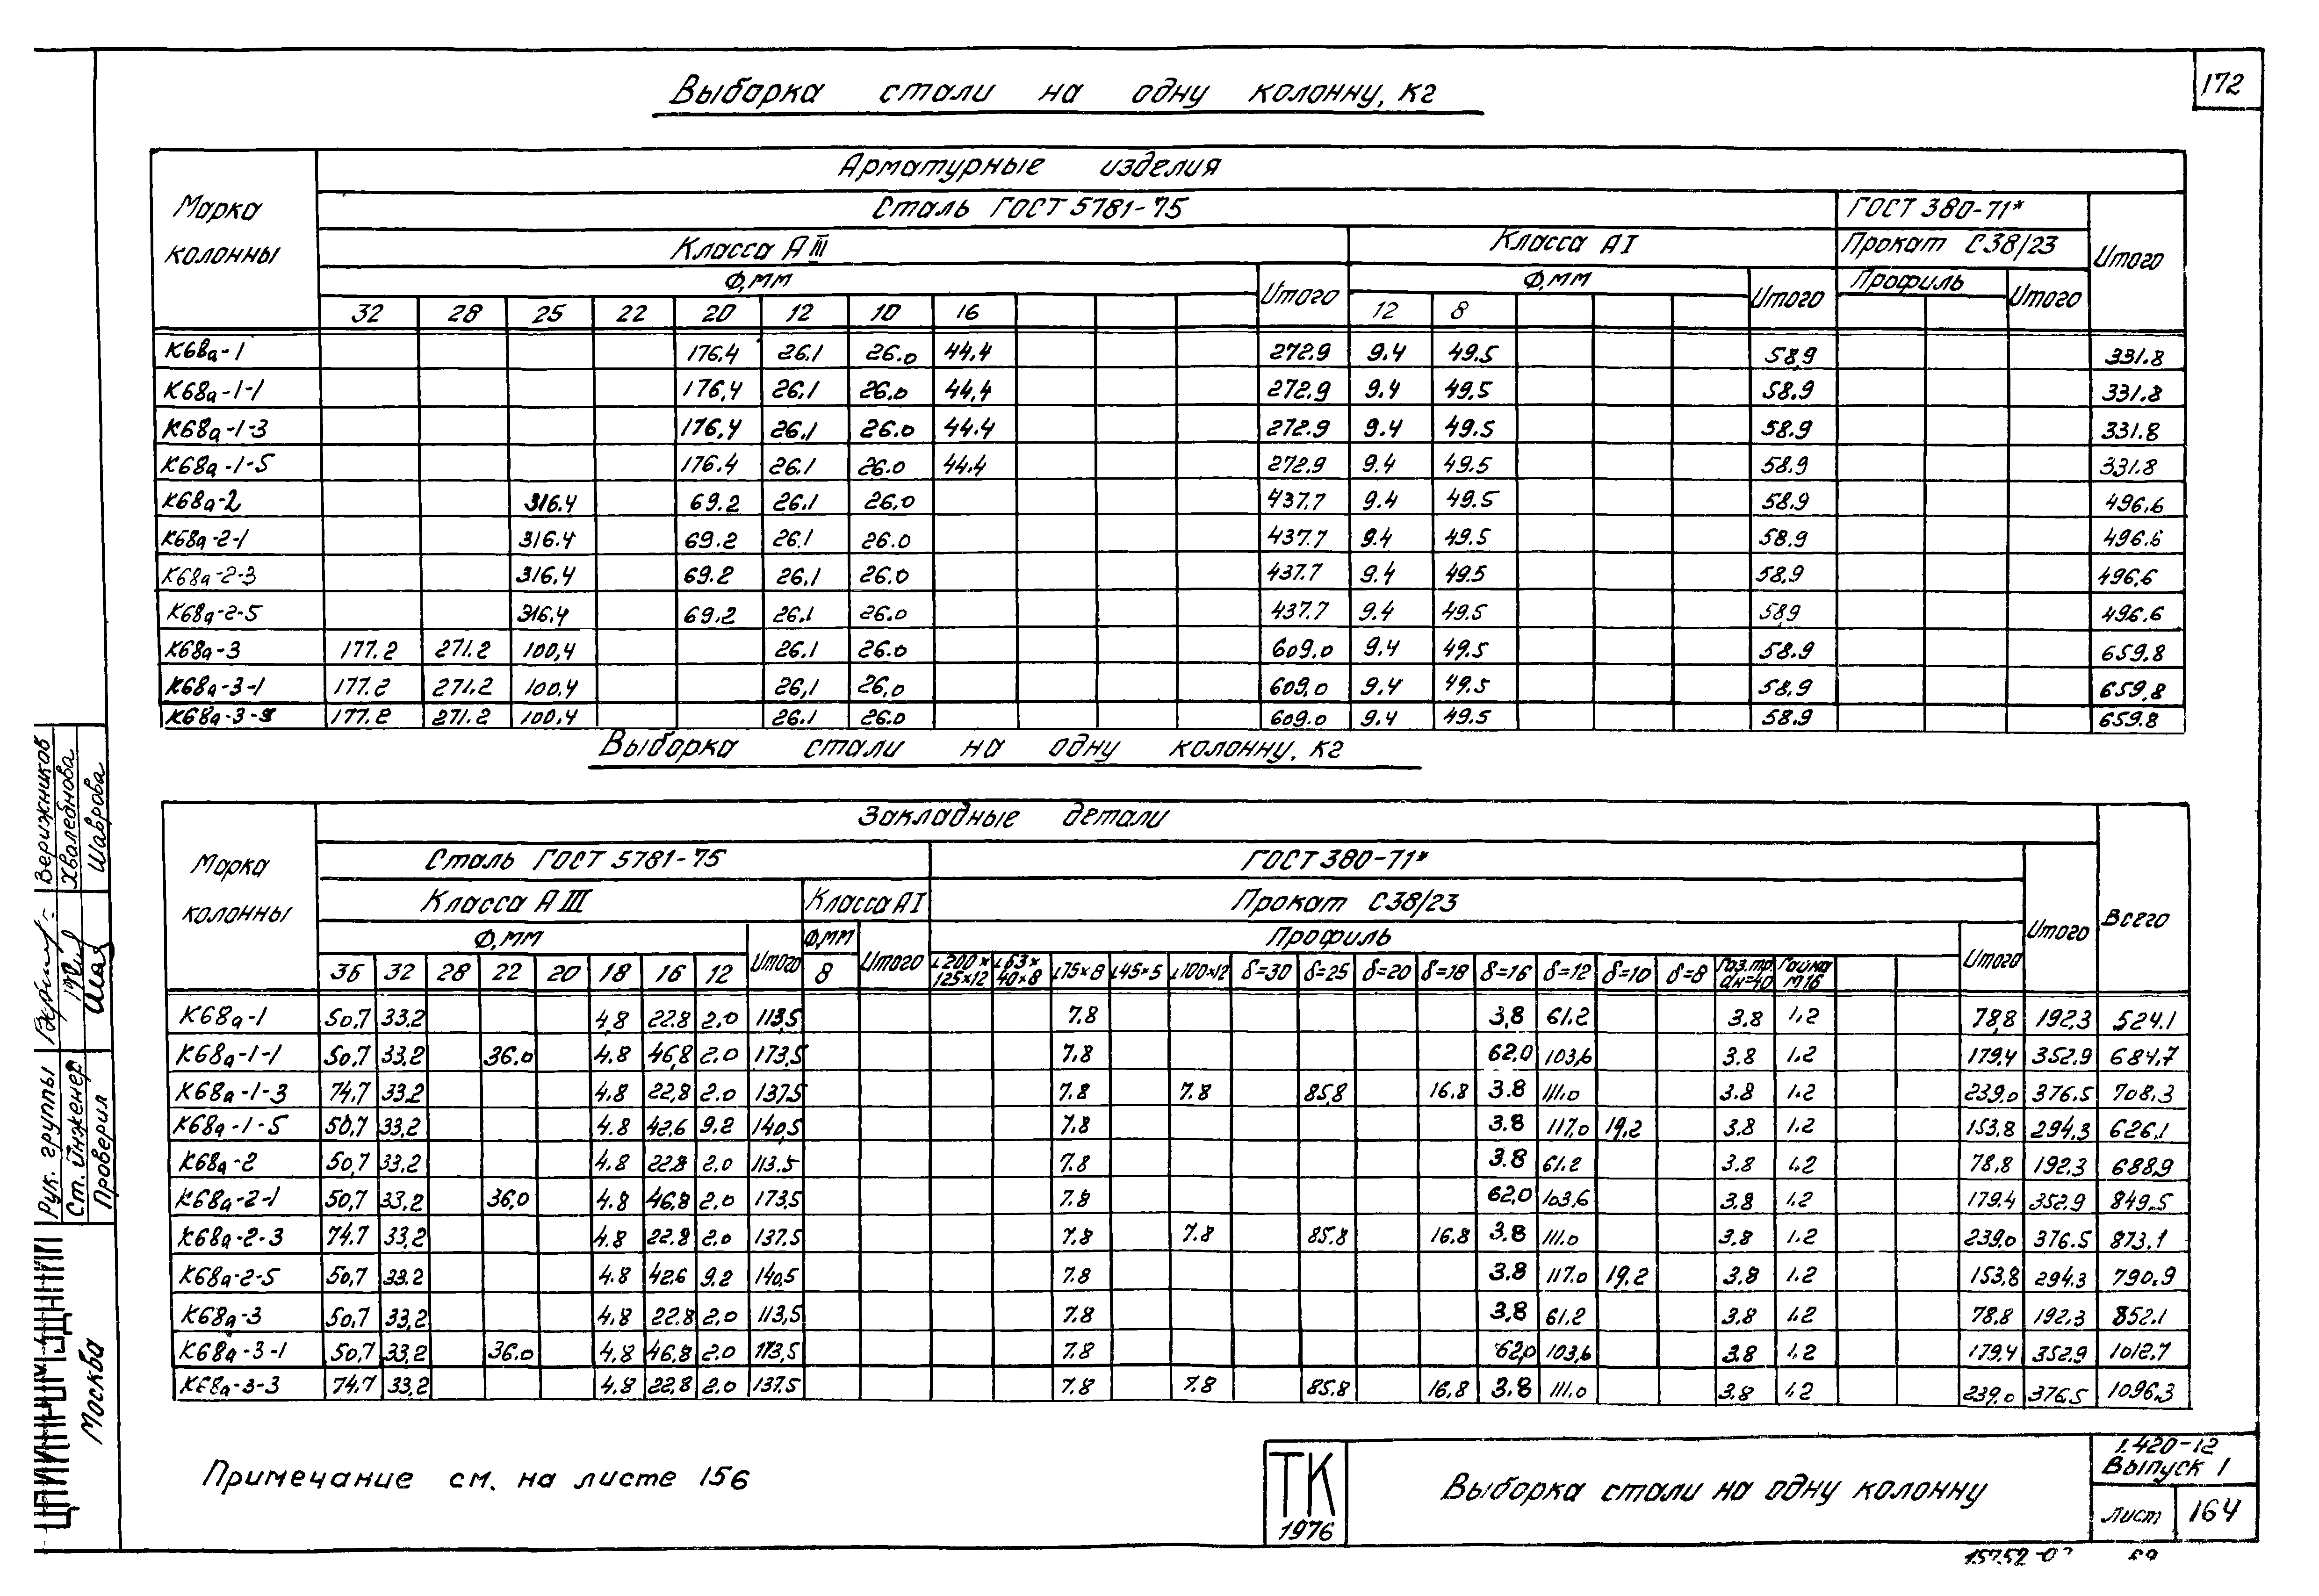 172
Выборка стали на одну колонну, кг
Марка колонны
Арматурные изделия
Сталь ГОСТ 5781-75 ГОСТ 380-71*
Класса АIII Класса АI Прокат С38/23 Итого
Ф,мм Итого Ф,мм Итого Профиль Итого
32 28 25 22 20 12 10 16 12 8
К68а-1 176.4 26.1 26.0 44.4 272.9 9.4 49.5 58,9 331.8
К68а-1-1 176,4 26.1 26.0 44,4 272.9 9.4 49.5 58.9 331.8
К68а-1-3 176,4 26.1 26.0 44.4 272.9 9.4 49.5 58.9 331.8
К68а-1-5 176.4 26.1 26.0 44.4 272.9 9.4 49.5 58.9 331.8
К68а-2 316.4 69.2 26.1 26.0 437.7 9.4 49.5 58.9 496.6
К68а-2-1 316.4 69.2 26.1 26.0 437.7 9.4 49.5 58.9 496.6
К68а-2-3 316.4 69.2 26.1 26.0 437.7 9.4 49.5 58.9 496.6
К68а-2-5 316.4 69.2 26.1 26.0 437.7 9.4 49.5 58,9 496.6
К68а-3 177.2 271.2 100,4 26.1 26.0 609.0 9.4 49.5 58.9 659.8
К68а-3-1 177.2 271.2 100.4 26,1 26,0 609,0 9.4 49.5 58.9 659,8
177.2 271.2 100.4 26.1 26.0 609.0 9.4 49.5 58.9 659.8
Выборка стали на одну колонну, кг
Марка колонны
Закладные детали Всего
Сталь ГОСТ 5781-75 ГОСТ 380-71* Итого
Класса АIII Класса АI Прокат С38/23
Ф,мм Итого Ф,мм Итого Профиль Итого
36 32 28 22 20 18 16 12 8 L200×125×12 L63×40×8 L75×8 L45×5 L100×12 δ=30 δ=25 δ=20 δ=18 δ=16 δ=12 δ=10 δ=8 Газ.тр. dн=40 Гайка М16
К68а-1 50,7 33.2 4,8 22.8 2.0 113,5 7.8 3,8 61.2 3.8 1.2 78,8 192.3 524.1
К68а-1-1 50,7 33,2 36.0 4.8 46,8 2.0 173,5 7.8 62.0 103,6 3.8 1.2 179.4 352.9 684,7
К68а-1-3 74.7 33.2 4.8 22,8 2.0 137.5 7.8 7.8 85,8 16.8 3.8 111.0 3.8 1.2 239.0 376.5 708.3
К68а-1-5 50,7 33,2 4.8 42.6 9.2 140,5 7.8 3.8 117,0 19,2 3.8 1.2 153.8 294.3 626,1
К68а-2 50,7 33,2 4.8 22.8 2.0 113.5 7.8 3.8 61.2 3.8 1.2 78.8 192.3 688,9
К68а-2-1 50,7 33,2 36,0 4.8 46,8 2.0 173,5 7.8 62,0 103,6 3.8 1.2 179.4 352.9 849.5
К68а-2-3 74.7 33,2 4.8 22.8 2.0 137.5 7.8 7.8 85.8 16.8 3.8 111.0 3.8 1.2 239.0 376.5 873.1
К68а-2-5 50,7 33.2 4.8 42.6 9.2 140,5 7.8 3.8 117.0 19.2 3.8 1.2 153,8 294.3 790.9
К68а-3 50,7 33,2 4.8 22.8 2.0 113,5 7.8 3,8 61.2 3.8 1.2 78.8 192.3 852.1
К68а-3-1 50,7 33,2 36.0 4.8 46,8 2.0 173,5 7.8 62,0 103,6 3.8 1.2 179,4 352.9 1012.7
К68а-3-3 74.7 33,2 4.8 22.8 2.0 137.5 7.8 7.8 85.8 16.8 3.8 111.0 3.8 1.2 239.0 376.5 1096.3
Примечание см. на листе 156
ТК
1976
Выборка стали на одну колонну
1.420-12
Выпуск 1
Лист 164
Рук. группы Верижников
Ст. инженер Хваледнова
Проверил Шаврова
Москва